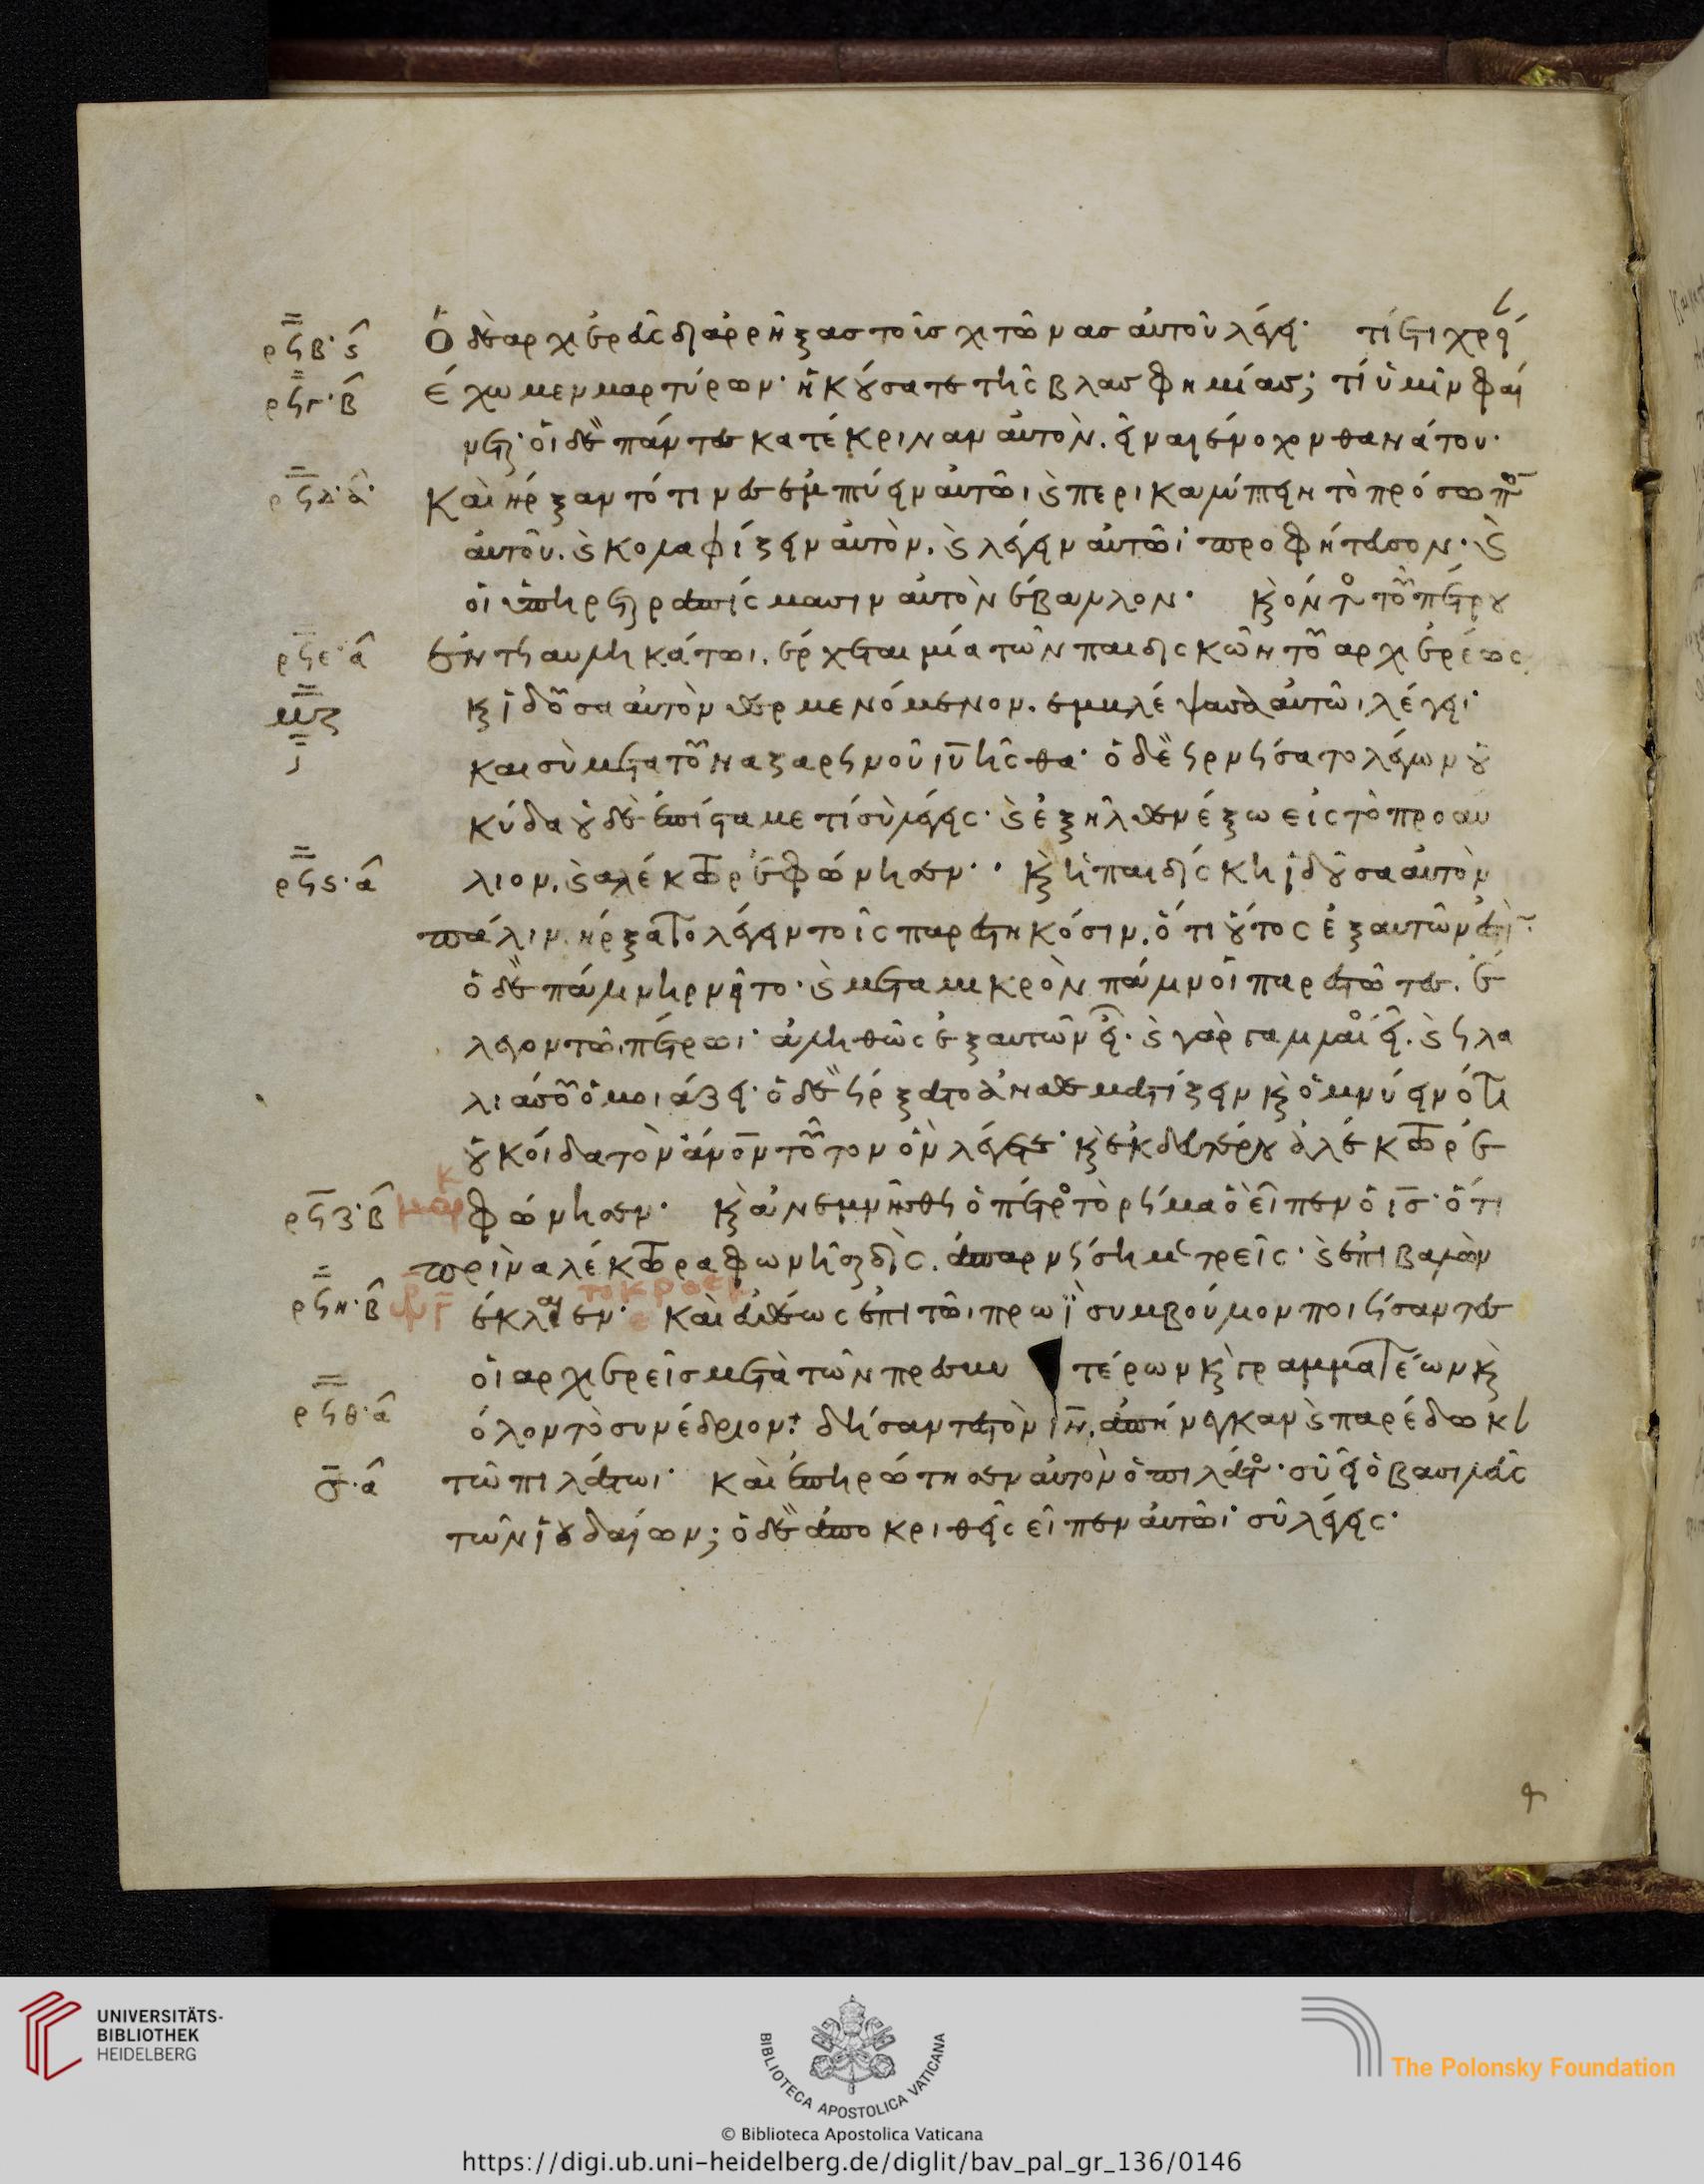 ρϟβ· ϛ Ὁ δὲ ἀρχιερεὺς διαρρήξας τοὺς χιτῶνας αὐτοῦ λέγει· τί ἔτι χρεί
ρϟγ· β ἔχωμεν μαρτύρων· ἠκούσατε τῆς βλασφημίας; τί ὑμῖν φαί
νεται· οἱ δὲ πάντες κατέκριναν αὐτὸν. εἶναι ἔνοχον θανάτου·
ρϟδ· α Καὶ ἤρξαντό τινες ἐμπτύειν αὐτῶι, ϗ περικαλύπτειν τὸ πρόσωπον
αὐτοῦ. ϗ κολαφίζειν αὐτὸν. ϗ λέγειν αὐτῶι· προφήτευσον· ϗ
οἱ ὑπηρέται ῥαπίσμασιν αὐτὸν ἔβαλλον· ϗ ὄντος τοῦ πέτρου
ρϟε· α ἐν τῇ αὐλῇ κάτωι. ἔρχεται μία τῶν παιδισκῶν τοῦ ἀρχιερέως
μζ ϗ ἰδοῦσα αὐτὸν θερμενόμενον. ἐμβλέψασα αὐτῶι, λέγει·
καὶ σὺ μετὰ τοῦ ναζαρηνοῦ ιυ ἦσθα· ὁ δὲ ἠρνήσατο λέγων οὐ
κ οἶδα οὐδὲ ἐπίσταμε τί σὺ λέγεις· ϗ ἐξῆλθεν ἔξω εἰς τὸ προαύ
ρϟϛ· α λιον. ϗ ἀλέκτωρ ἐφώνησεν· ϗ ἡ παιδίσκη ἰδοῦσα αὐτὸν
πάλιν. ἤρξατο λέγειν τοῖς παρεστηκόσιν. ὅτι οὗτος ἐξ αὐτῶν ἐστὶν·
ὁ δὲ πάλιν ἠρνεῖτο· ϗ μετὰ μικρὸν πάλιν οἱ παρεστῶτες. ἔ
λεγον τῶι πέτρωι· ἀληθῶς ἐξ αὐτῶν εἶ. ϗ γὰρ γαλιλαῖος εἶ. ϗ ἡ λα
λιά σου ὁμοιάζει· ὁ δὲ ἤρξατο ἀναθεματίζειν ϗ ὀμνύειν ὅτι
οὐκ οἶδα τὸν ανον τοῦτον ὃν λέγετε· ϗ ἐκ δευτέρου ἀλέκτωρ ἐ
ρϟζ· β φώνησεν· ϗ ἀνεμνήσθη ὁ πέτρος τὸ ῥῆμα ὃ εἶπεν ὁ ις· ὅτι
πρὶν ἀλέκτορα φωνῆσαι δὶς. ἀπαρνήσῃ με τρεῖς· ϗ ἐπιβαλὼν
ρϟη· β ἔκλαιεν· Καὶ εὐθέως ἐπὶ τῶι πρωῒ συμβούλιον ποιήσαντες
οἱ ἀρχιερεῖς μετὰ τῶν πρεσβυτέρων ϗ γραμματέων ϗ
ρϟθ· α ὅλον τὸ συνέδριον· δήσαντες τὸν ιν. ἀπήνεγκαν ϗ παρέδωκ
σ· α τῶ πιλάτωι· Καὶ ἐπηρώτησεν αὐτὸν ὁ πιλάτος· σὺ εἶ ὁ βασιλεὺς
τῶν ἰουδαίων; ὁ δὲ ἀποκριθεὶς εἶπεν αὐτῶι· σὺ λέγεις·
UNIVERSITÄTS-
BIBLIOTHEK
HEIDELBERG
BIBLIOTECA APOSTOLICA VATICANA
The Polonsky Foundation
© Biblioteca Apostolica Vaticana
https://digi.ub.uni-heidelberg.de/diglit/bav_pal_gr_136/0146